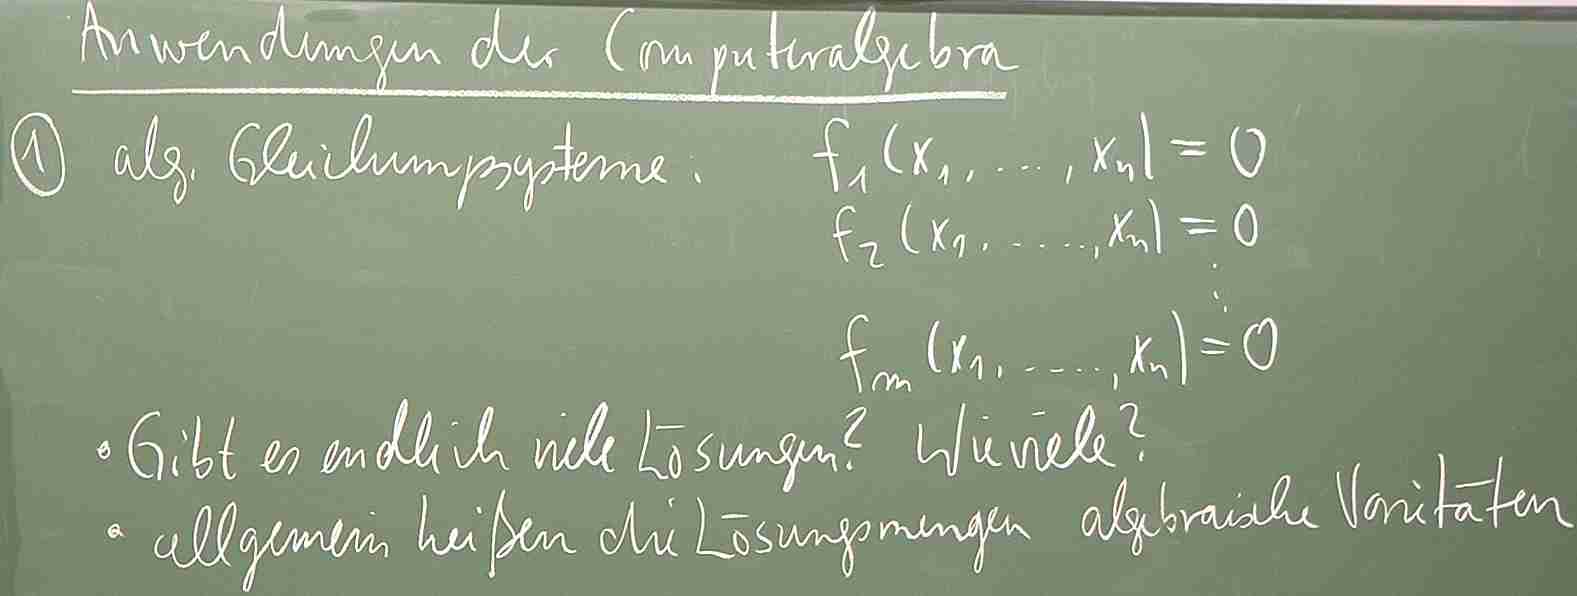 Anwendungen der Computeralgebra
① alg. Gleichungssysteme: f₁(x₁, ..., xₙ) = 0
f₂(x₁, ....., xₙ) = 0
⋮
fₘ(x₁, ....., xₙ) = 0
• Gibt es endlich viele Lösungen? Wieviele?
• allgemein heißen die Lösungsmengen algebraische Varitäten